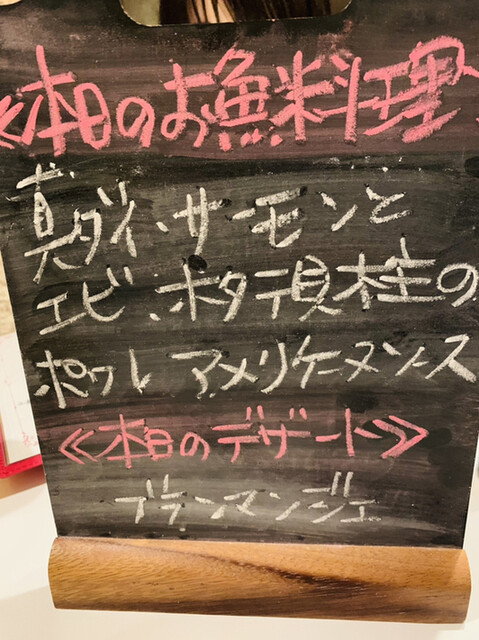 ≪本日のお魚料理
真ダイ、サーモンと
エビ、ホタテ貝柱の
ポワレ アメリケーヌソース
≪本日のデザート≫
ブランマンジェ